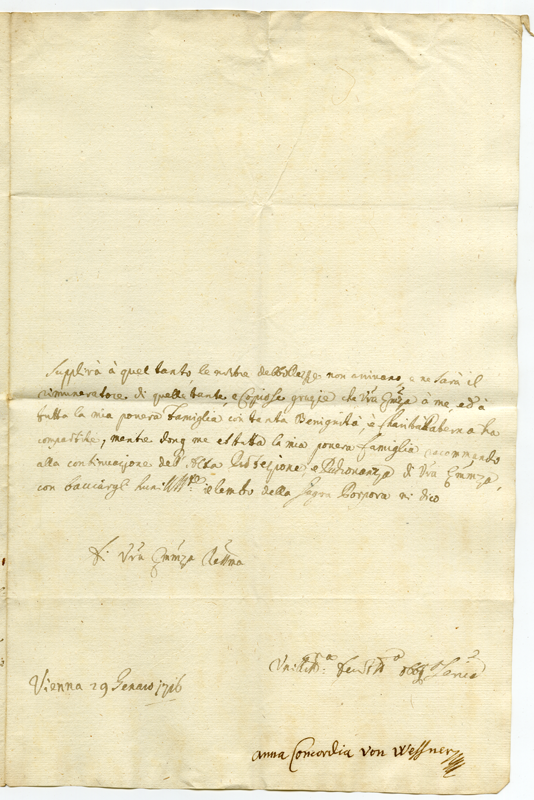 Supplirà à quel tanto, le nostre debolezze non arivano, e ne sarà il
rimuneratore di quelle tante, e Copiose grazie che Vrã Emza à me, ed à
tutta la mia povera famiglia con tanta Benignità, è Charità Paterna ha
compartite, mentre donq me e tutta la mia povera famiglia racommando
alla continuazione dell' Alta Protezione, e Padronanza di Vrã Emza,
con bacciargl il lembo della Sagra Porpora mi dico
di Vrã Emza Revma
Vienna 29 Genaro 1716
Anna Concordia von Wessner